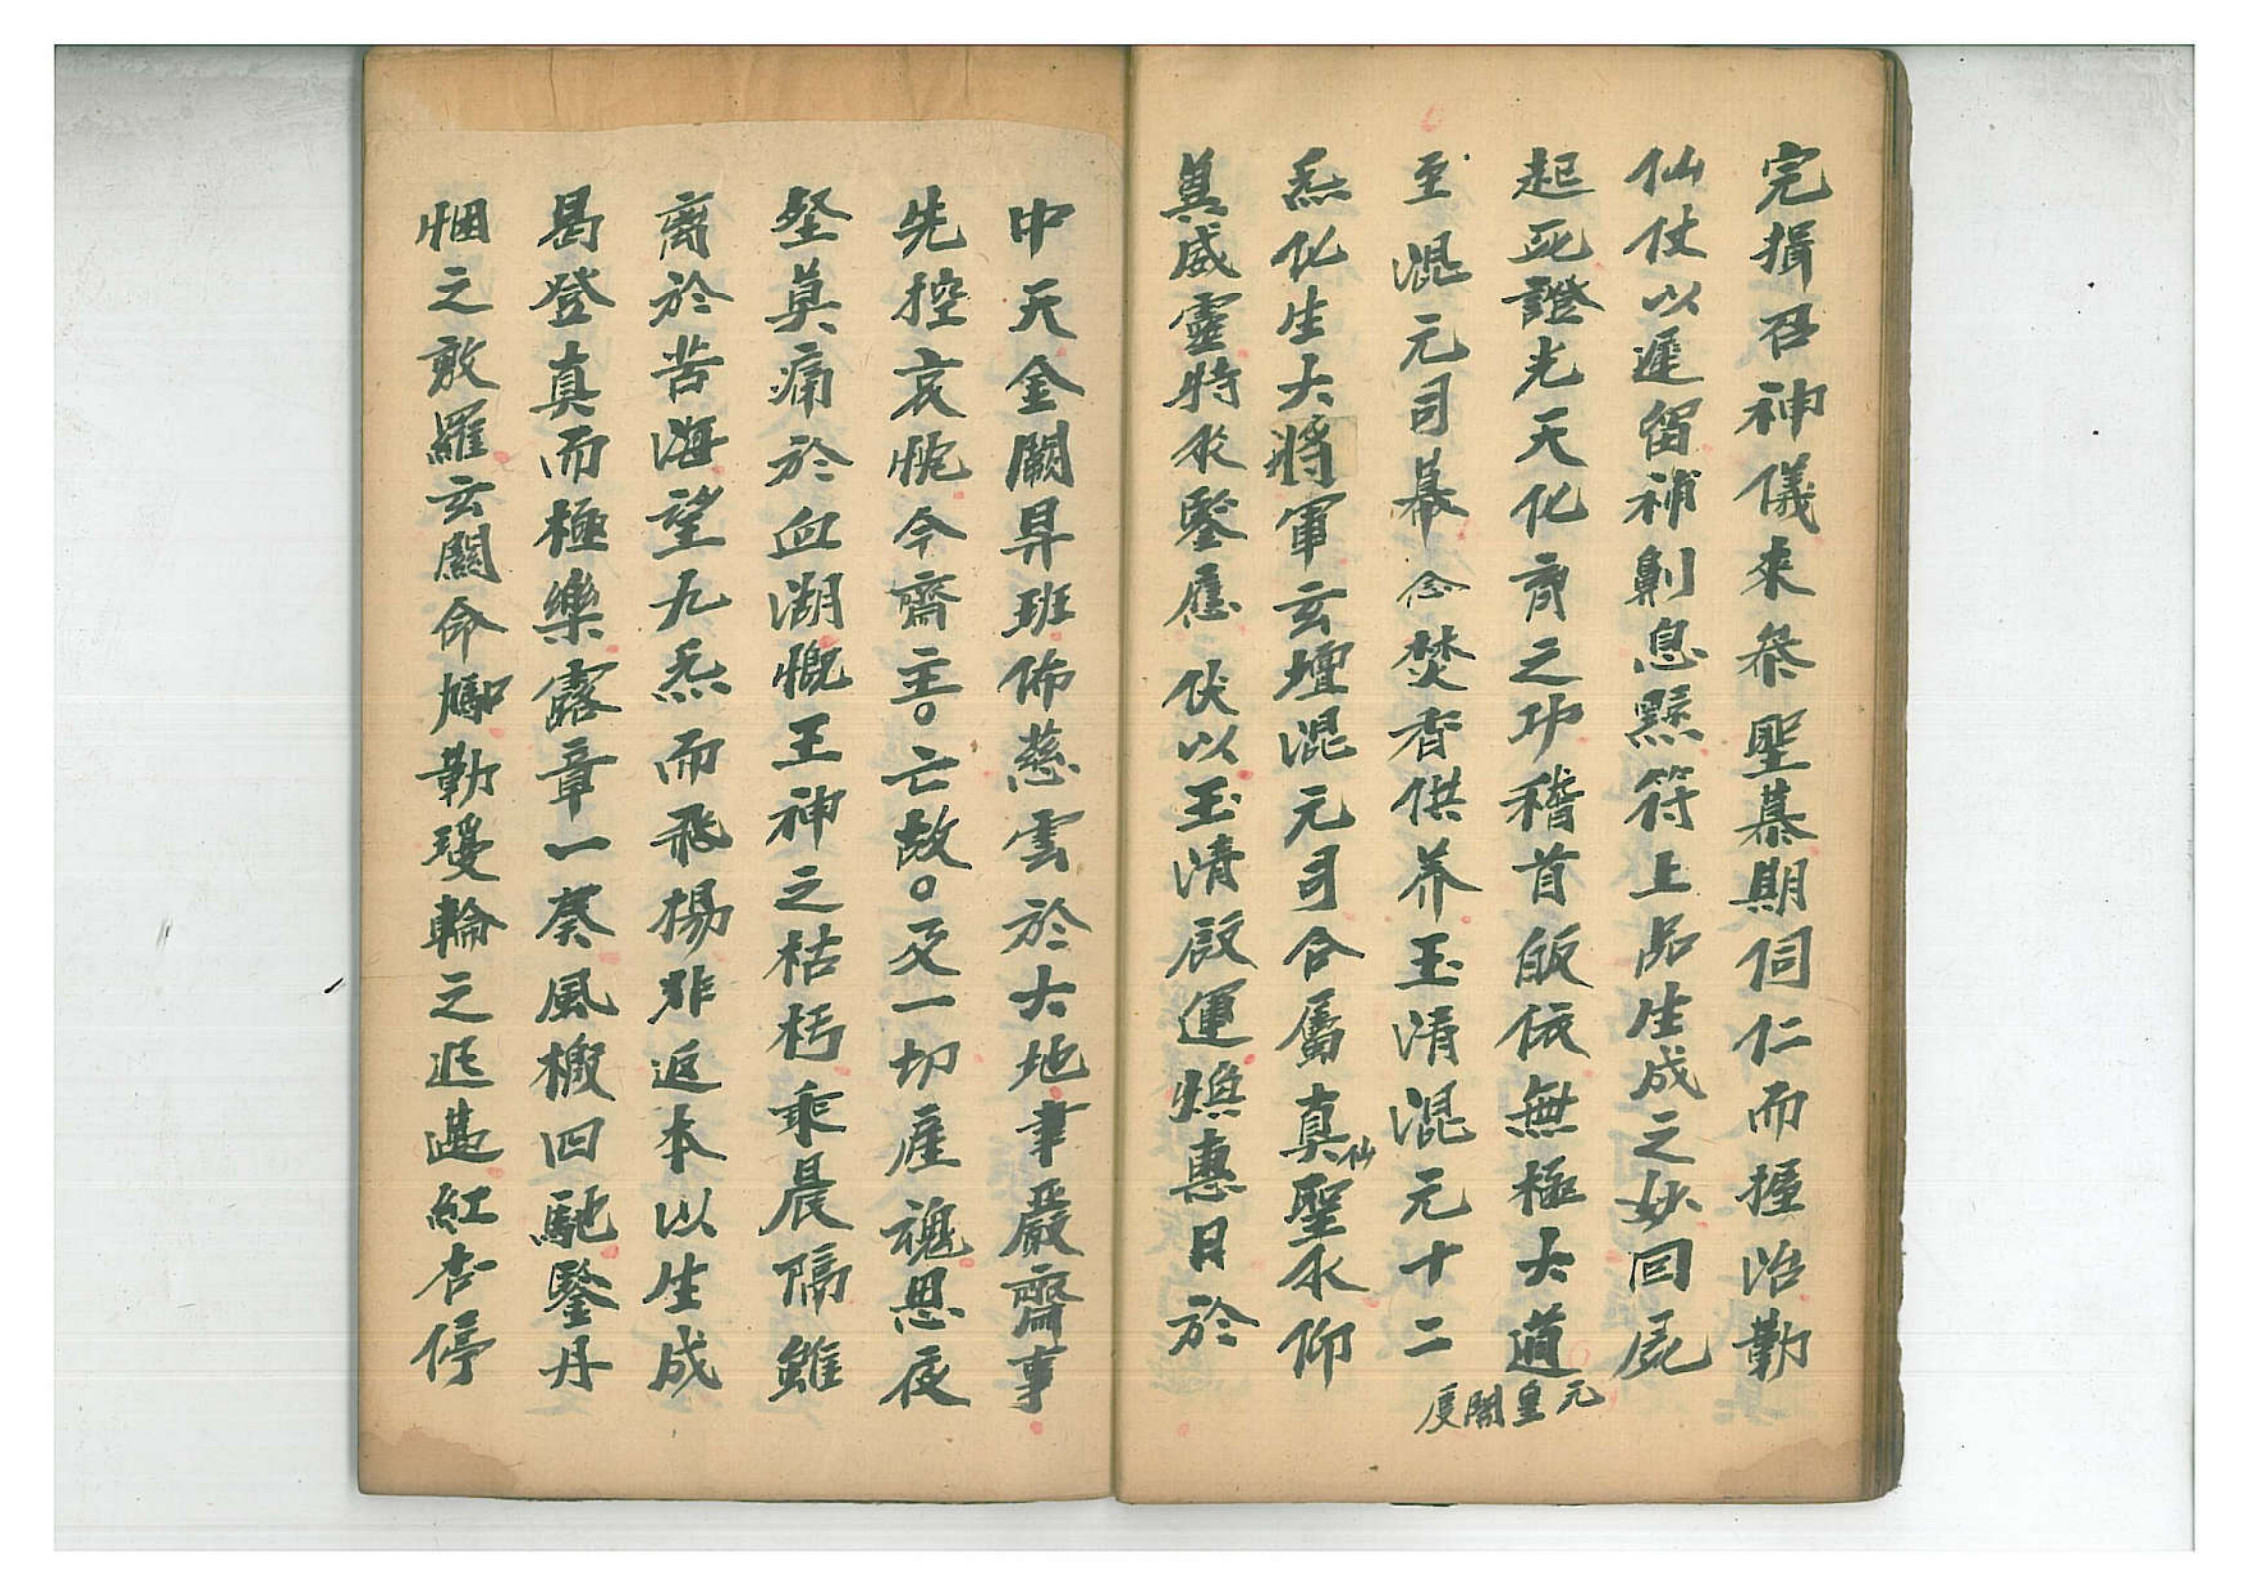 完揖召神儀來叅聖慕期伺仁而握治勤
仙仗以遲留補劓息黥符上品生成之妙回屍
起死證光天化育之功稽首皈依無極大道
元皇開度
至混元司幕念焚香供养玉清混元十二
炁化生大將軍玄壇混元司合屬真仙聖永仰
真威靈特永鑒應伏以玉清啟運煥惠日於
中天金闕昇班佈慈雲於大地聿嚴齋事
先控哀忱今齋主○亡故○交一切產魂思夜
壑莫痛於血湖慨王神之枯朽乘晨隔雖
离於苦海望九炁而飛揚非返本以生成
曷登真而極樂露章一奏風橃四馳鑒丹
悃之敷羅玄關命勒瓊輪之遐邁紅杏停